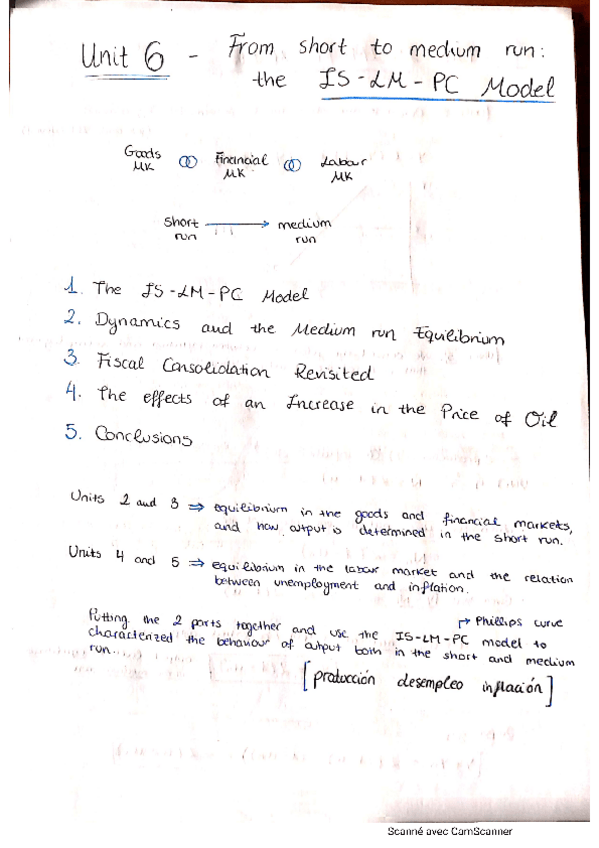 Unit 6 - From short to medium run:
the IS-LM-PC Model
Goods Financial Labour
MK MK MK
short → medium
run run
1. The IS-LM-PC Model
2. Dynamics and the Medium run Equilibrium
3. Fiscal Consolidation Revisited
4. The effects of an Increase in the Price of Oil
5. Conclusions
Units 2 and 3 ⇒ equilibrium in the goods and financial markets,
and how output is determined in the short run.
Units 4 and 5 ⇒ equilibrium in the labour market and the relation
between unemployment and inflation.
Phillips curve
Putting the 2 parts together and use the IS-LM-PC model to
characterized the behaviour of output both in the short and medium
run.
[producción desempleo inflación]
Scanné avec CamScanner